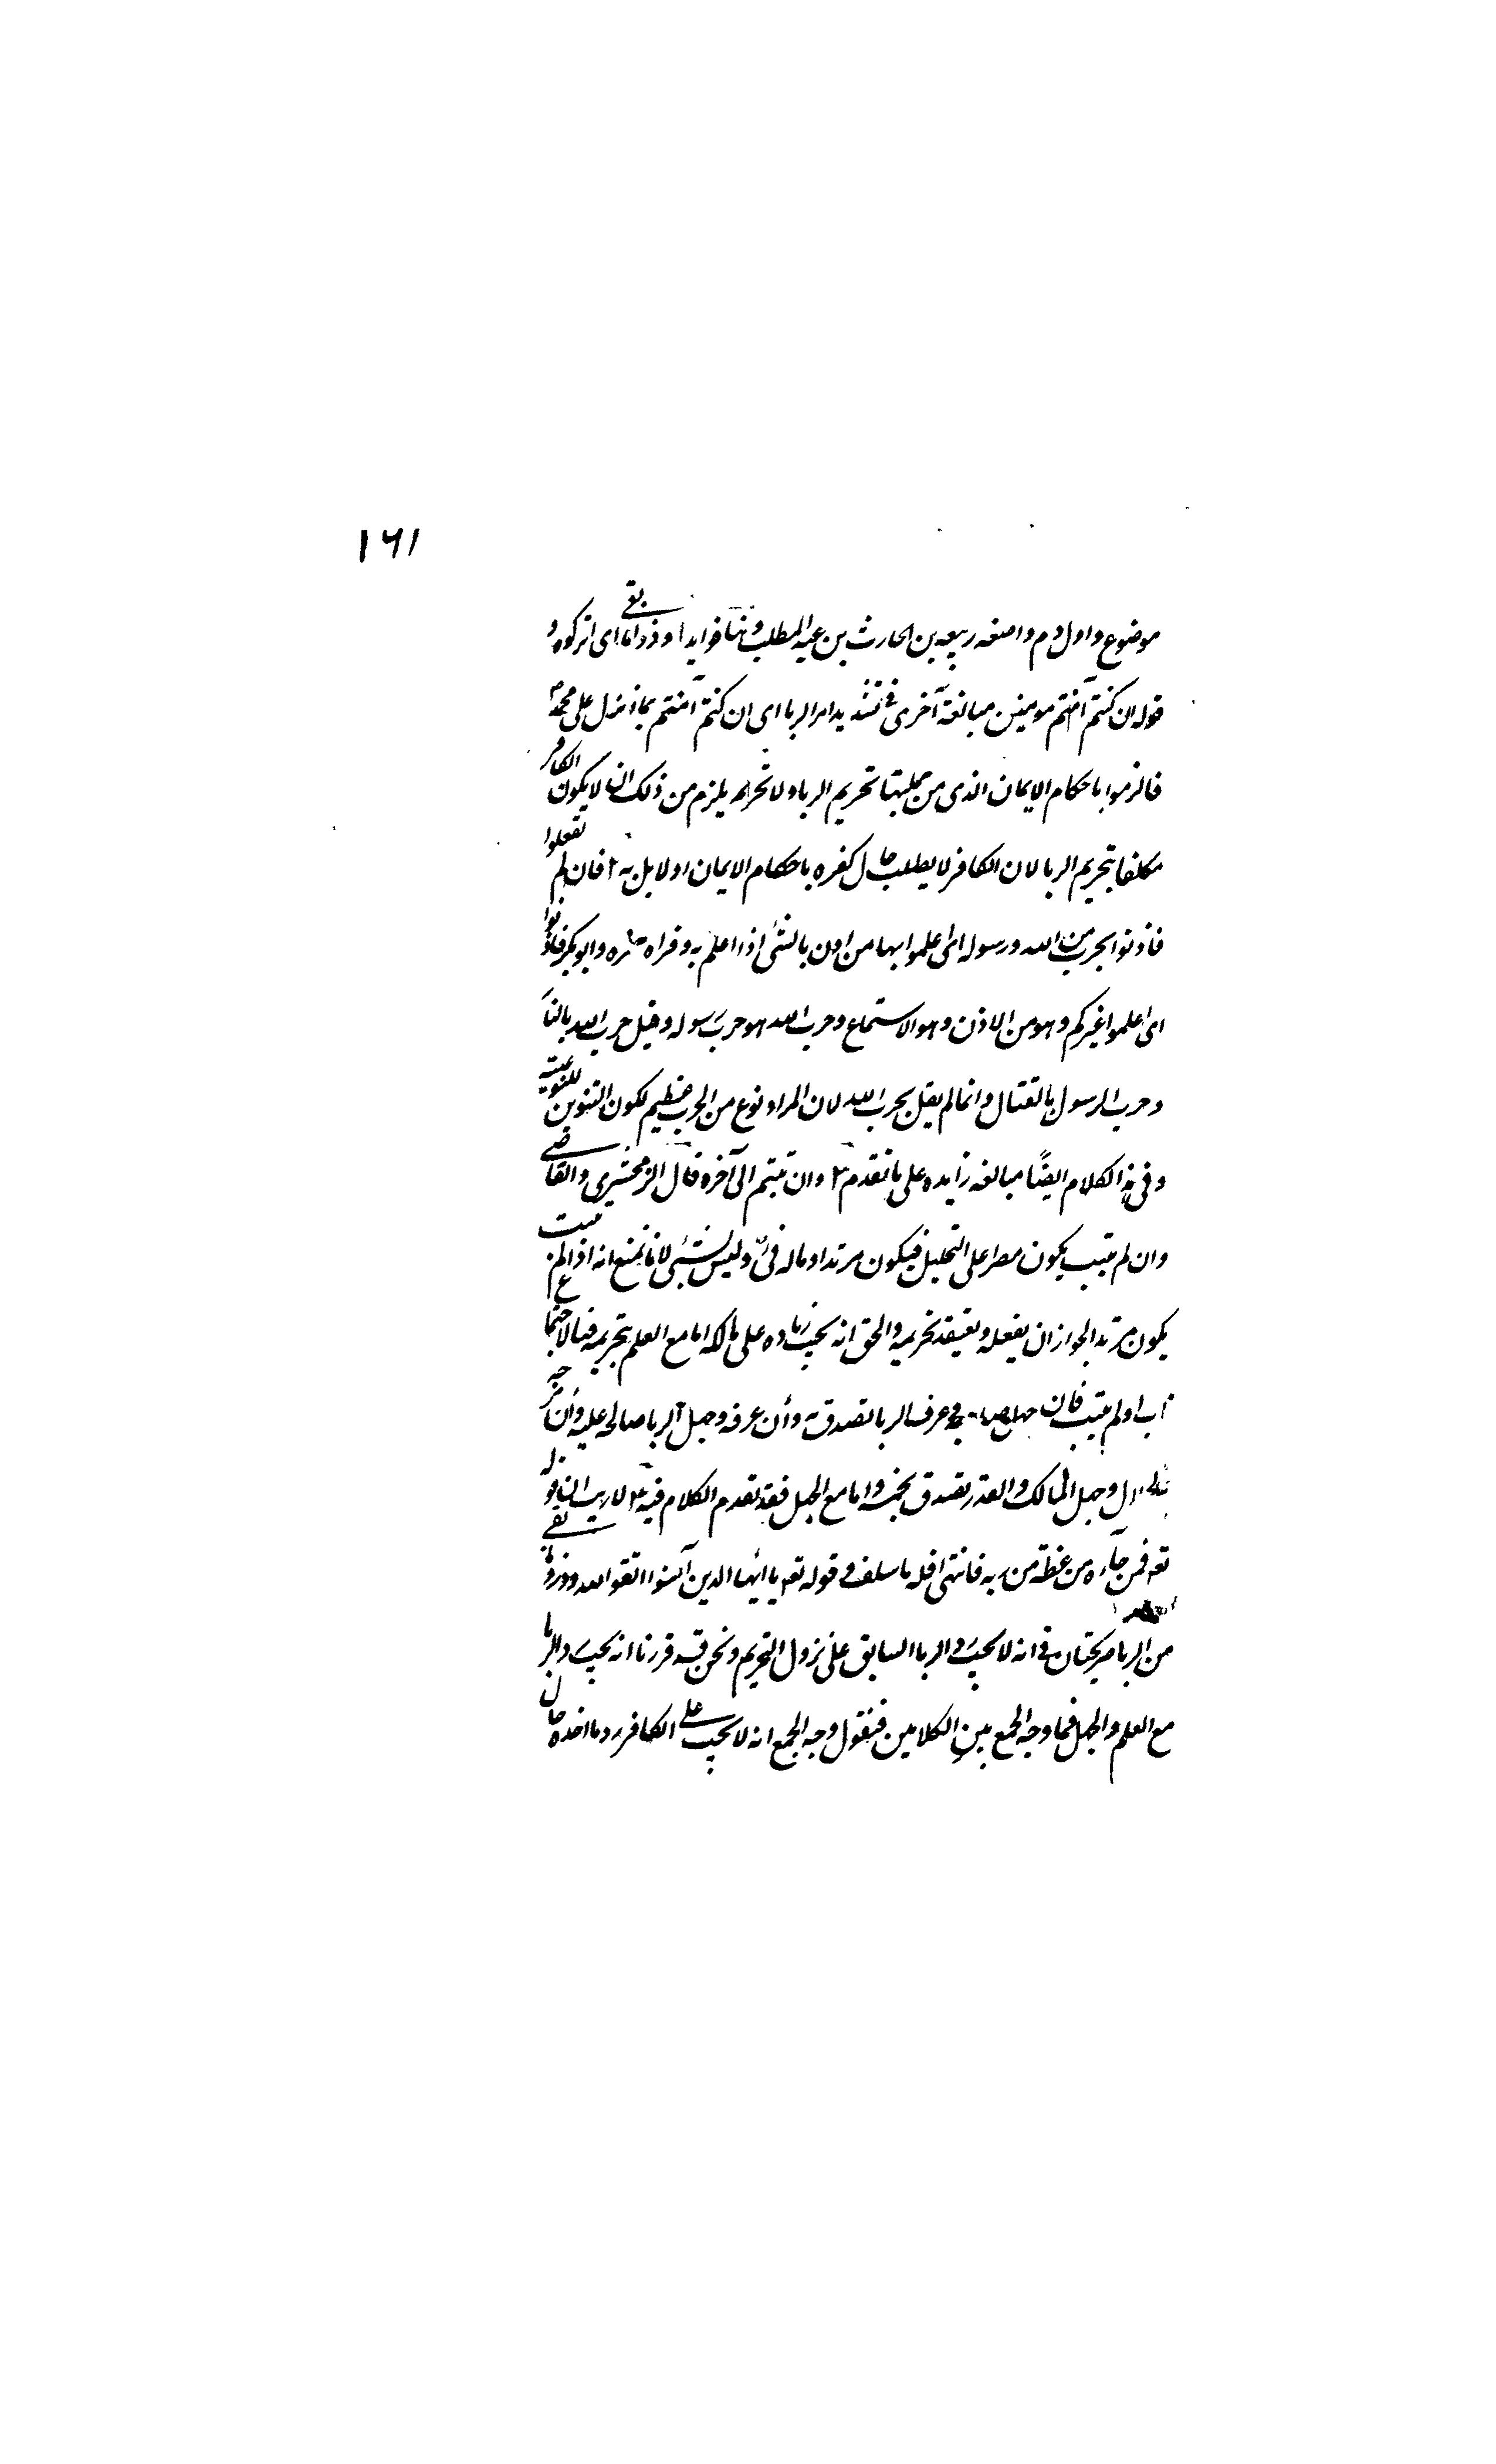 ١٦١
موضوع واول دم واضعه ربيعه بن الحارث بن عبد المطلب وهنا فوايد ا وذروا ما بقى اى اتركوه و
قوله ان كنتم آمنتم مومنين مبالغة آخرى فى تشديد امر الربا اى ان كنتم آمنتم بما نزل على محمد ص
فالزموا باحكام الايمان الذى من جملتها تحريم الربا ولا تحرير يلزم من ذلك ان لا يكون الكافر
مكلفا بتحريم الربا لان الكافر لا يطلب حال كفره باحكام الايمان اولا بل به ٢ فان لم تفعلوا
فاذنوا بحرب من الله ورسوله اى اعلموا بها من اذن بالشئ اذا اعلم به وقراه حمزه وابو بكر فاذنوا
اى اعلموا غيركم وهو من الاذن وهو الاستماع وحرب الله هو حرب رسوله وقيل حرب الله بالنار
وحرب الرسول بالقتال وانما لم يقل بحرب الله لان المراد نوع من الحرب عظيم لكون التنوين للنوعية
وفى هذ الكلام ايضًا مبالغه زايده على ما تقدم ٣ وان تبتم الى آخره قال الزمخشرى والقاضى
وان لم يتب يكون مصرا على التحليل فيكون مرتدا وماله فئ وليس بشئى لانا نمنع انه اذا لم يتب
يكون مرتدا لجواز ان يفعله ويعتقد تحريمه والحق انه يجب رده على مالكه اما مع العلم بتحريمه فبالاجتماع
تاب او لم يتب فان جهل صاحبه وعرف الربا تصدق به وأن عرفه وجهل الربا صالح عليه وأن مزجه
بالحلال وجهل المالك والقدر تصدق بخمسه واما مع الجهل فقد تقدم الكلام فيه ٤ لا ريب ان قوله
تعه فمن جآءه موعظة من ربه فانتهى فله ما سلف وقوله تعه يا ايها الذين آمنوا اتقوا الله وذروا ما بقى
من الربا صريحتان فى انه لا يجب رد الربا السابق على نزول التحريم ونحن قد قررنا انه يجب رد الربا
مع العلم والجهل فما وجه الجمع بين الكلامين فنقول وجه الجمع انه لا يجب على الكافر رد ما اخذه حال